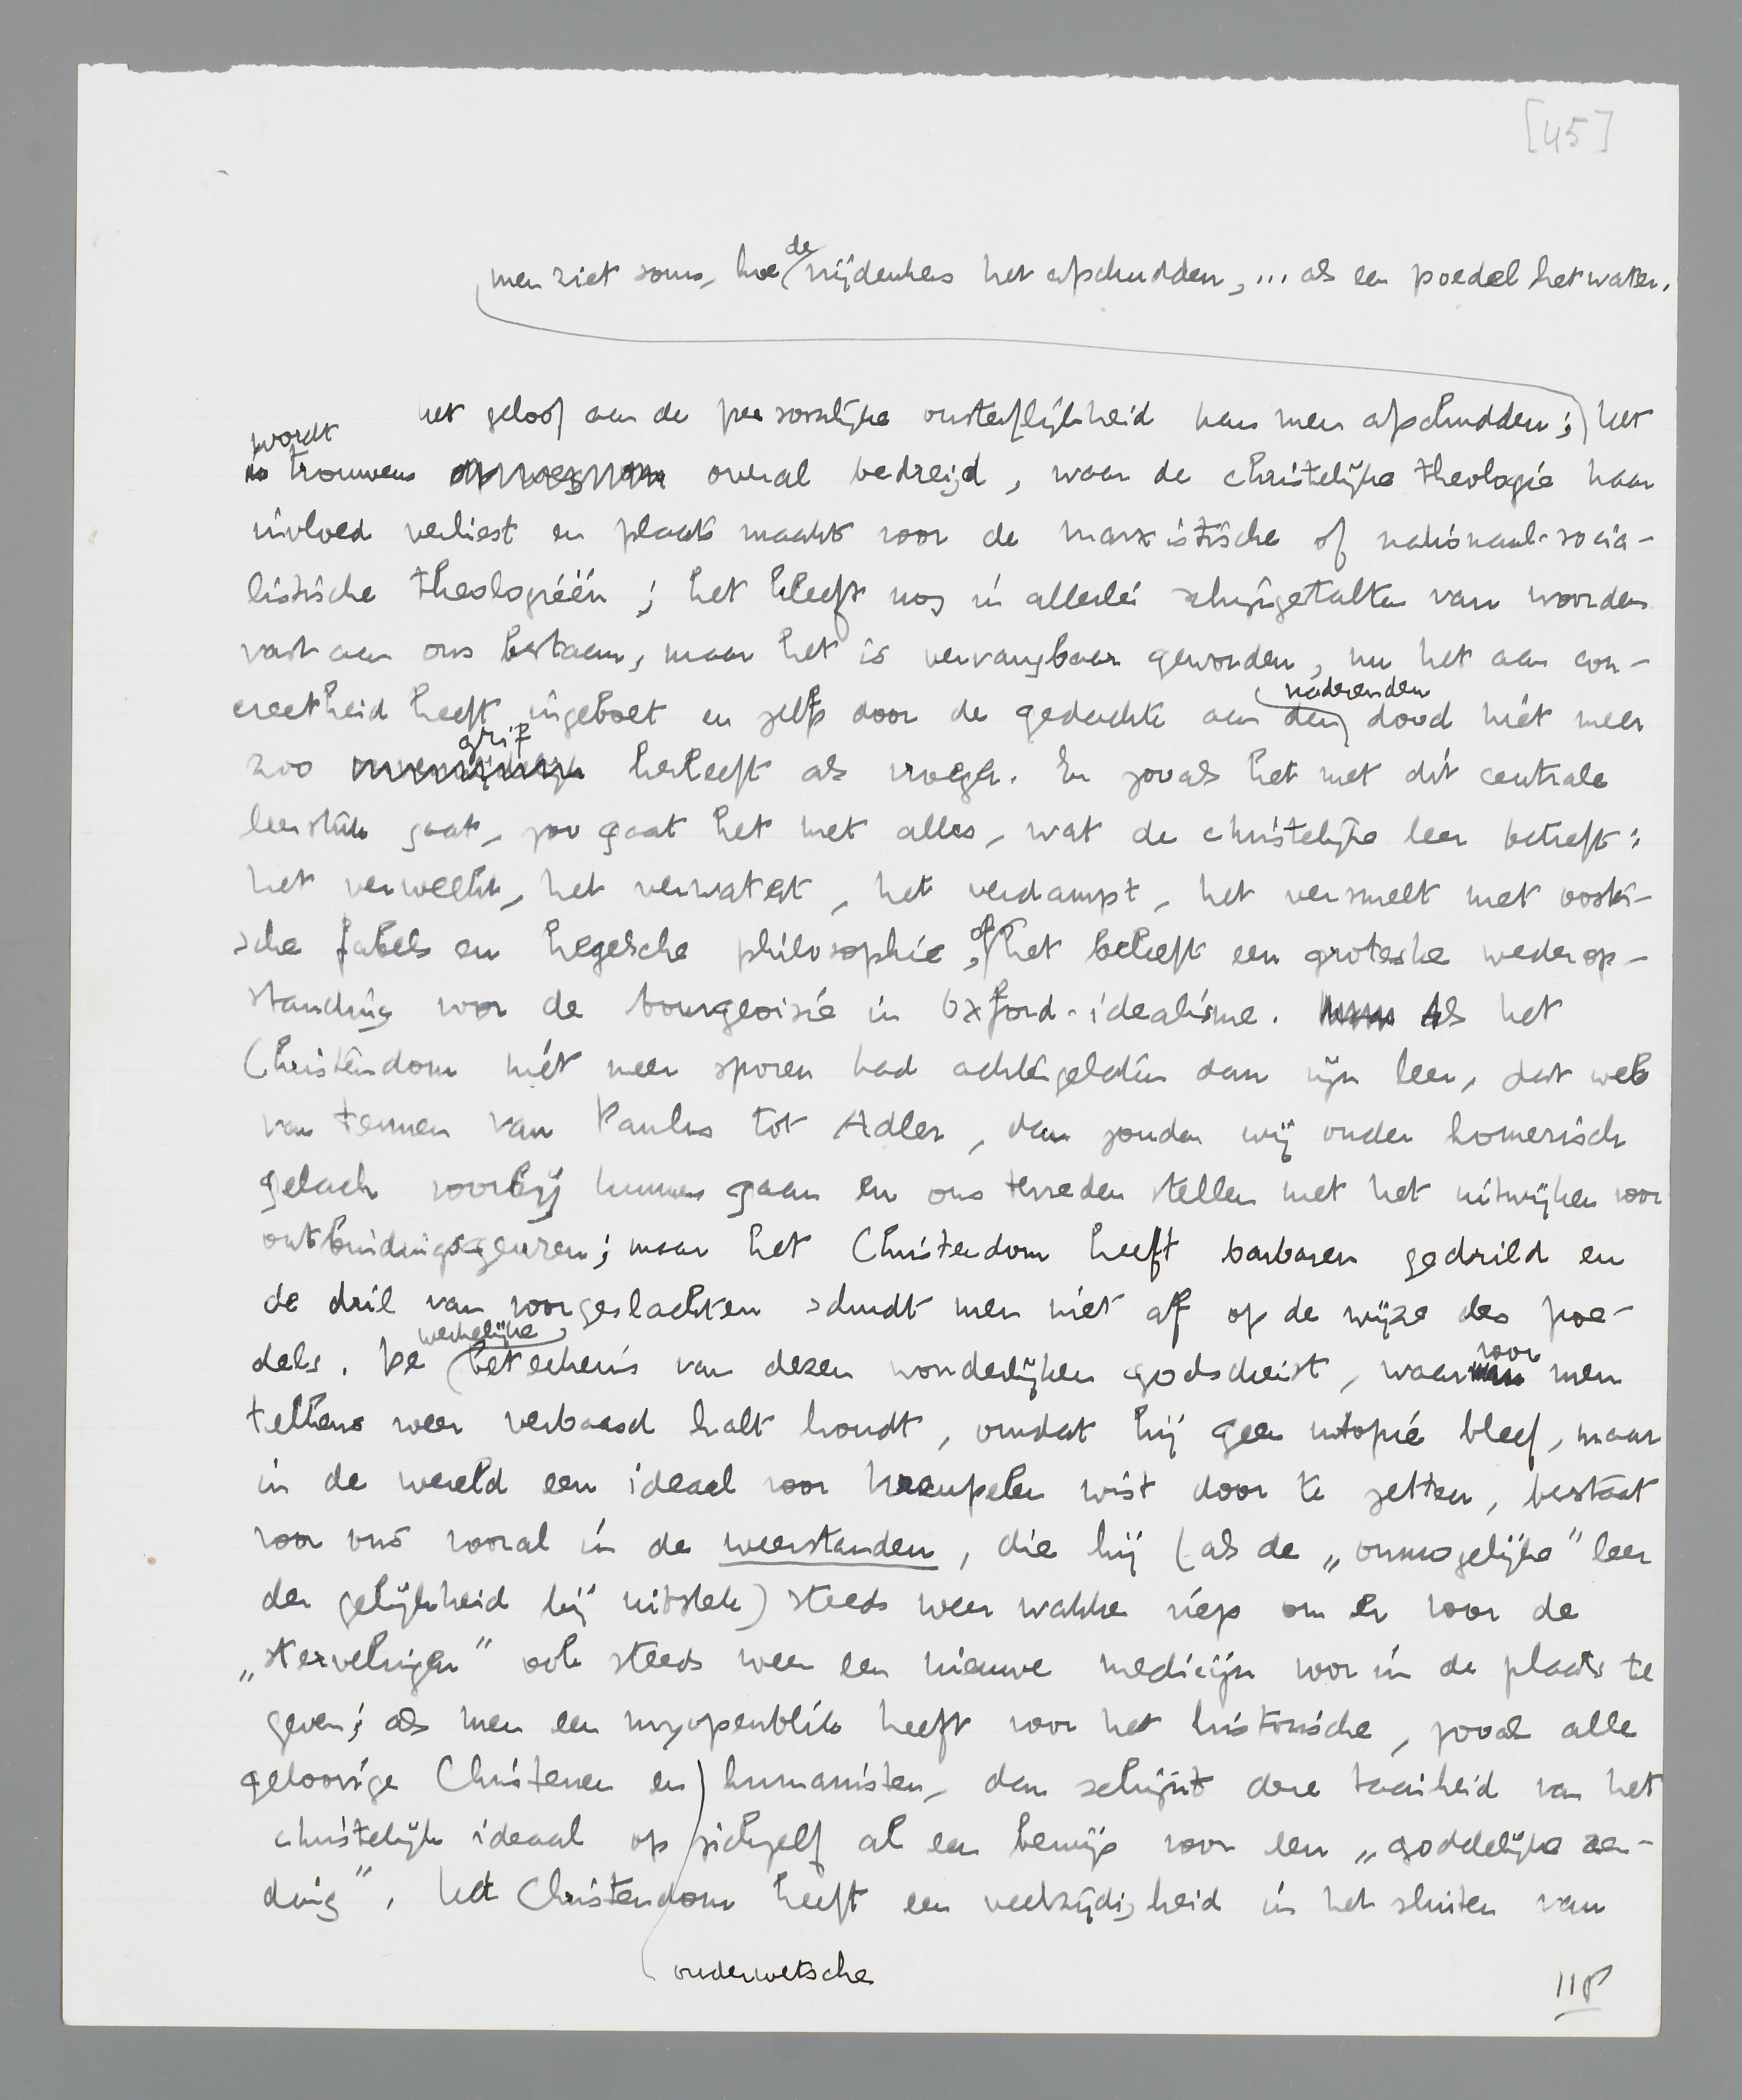 [45]
men ziet soms, hoe de vrijdenkers het afschudden, ... als een poedel het water.
het geloof aan de persoonlijke onsterflijkheid kan men afschudden; het
wordt
is trouwens overal bedreigd, waar de christelijke theologie haar
invloed verliest en plaats maakt voor de marxistische of nationaal-socia-
listische theologieën; het kleeft nog in allerlei schijngestalten van woorden
vast aan ons bestaan, maar het is vervangbaar geworden, nu het aan con-
creetheid heeft ingeboet en zelfs door de gedachte aan den naderenden dood niet meer
zoo grif herleeft als vroeger. En zooals het met dit centrale
leerstuk gaat, zoo gaat het met alles, wat de christelijke leer betreft:
het verweekt, het verwatert, het verdampt, het versmelt met oosti-
sche fabels en hegelsche philosophie, of het beleeft een groteske wederop-
standing voor de bourgeoisie in Oxford-idealisme. Als het
Christendom niet meer sporen had achtergelaten dan zijn leer, dat web
van termen van Paulus tot Adler, dan zouden wij onder homerisch
gelach voorbij kunnen gaan en ons tevreden stellen met het uitwijken voor
ontbindingsgeuren; maar het Christendom heeft barbaren gedrild en
de dril van voorgeslachten schudt men niet af op de wijze des poe-
dels. De werkelijke beteekenis van dezen wonderlijken godsdienst, waarvoor men
telkens weer verbaasd halt houdt, omdat hij geen utopie bleef, maar
in de wereld een ideaal voor kreupelen wist door te zetten, bestaat
voor ons vooral in de weerstanden, die hij (als de „onmogelijke” leer
der gelijkheid bij uitstek) steeds weer wakker riep om er voor de
„stervelingen” ook steeds weer een nieuwe medicijn voor in de plaats te
geven; als men een myopenblik heeft voor het historische, zooals alle
geloovige Christenen en humanisten, dan schijnt deze taaiheid van het
christelijk ideaal op zichzelf al een bewijs voor een „goddelijke zen-
ding”. Het Christendom heeft een veelzijdigheid in het sluiten van
ouderwetsche
118